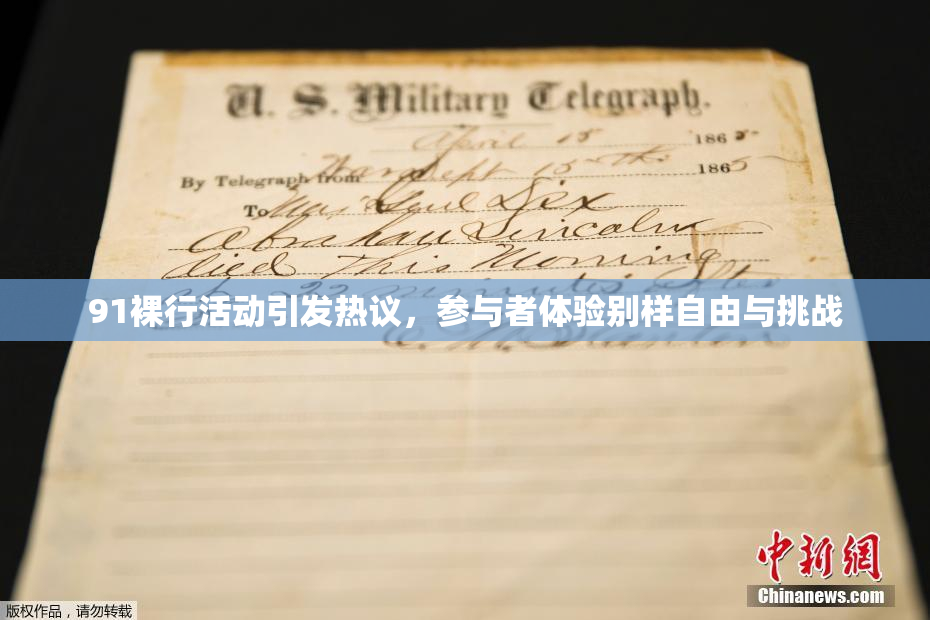 U. S. Military Telegraph.
April 15 1865
By Telegraph from War Dept 15th 1865
To Maj Genl Dix
Abraham Lincoln
died This Morning
at 22 minutes after
91裸行活动引发热议，参与者体验别样自由与挑战
E. M. Stanton
中新网
Chinanews.com
版权作品，请勿转载